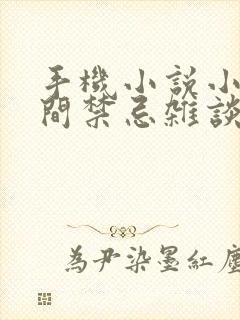 手機小說小
間禁忌雜談
為尹染墨紅塵